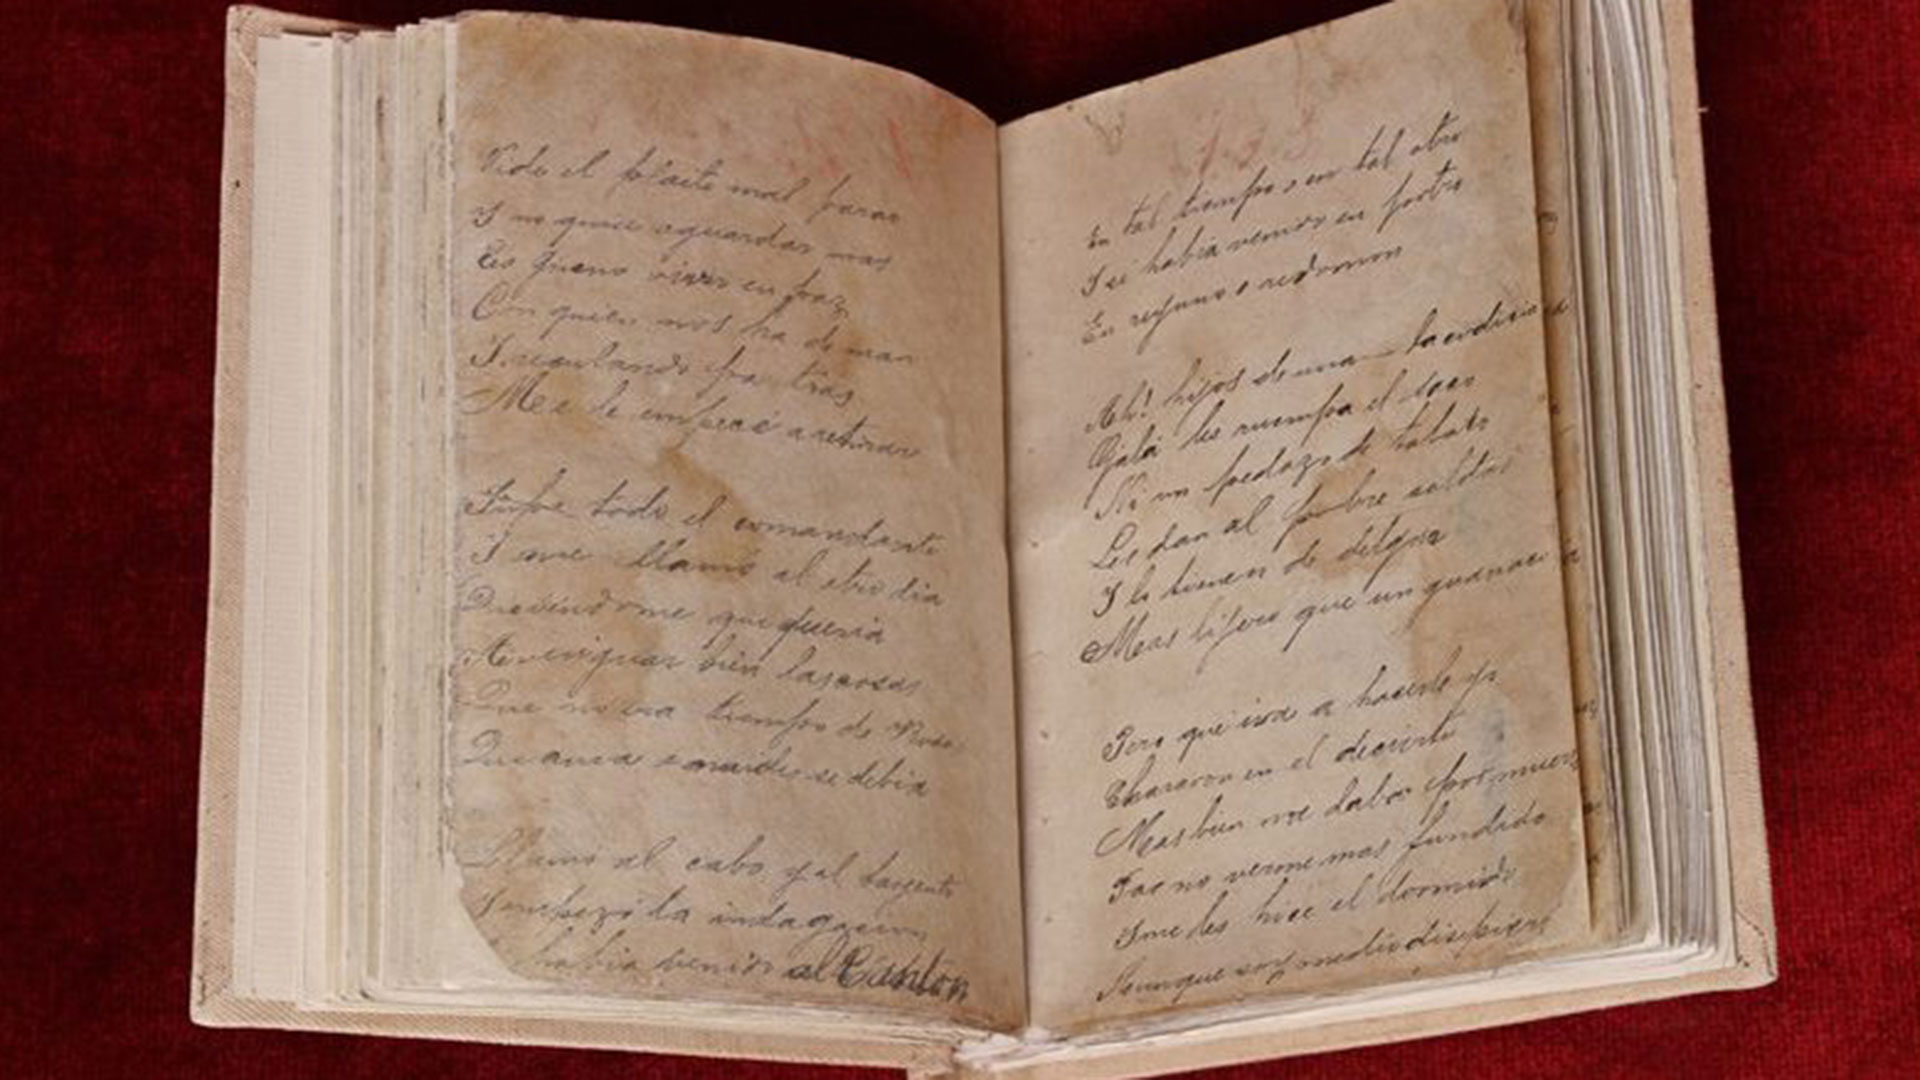 Vide el pláito mal parao
Y no quise aguardar mas
Es güeno vivir en paz
Con quien nos ha de man
Y reculando pa tras
Me le empecé a retirar
Supo todo el comandante
Y me llamó al otro dia
Diciéndome que queria
Averiguar bien las cosas
Que no era tiempo de Rosas
Que aura a naides se debia
Llamó al cabo y al sargento
Y empezó la indagacion
habia venido al Canton
En tal tiempo o en tal otro
Y si habia venido en potro
En reyuno o redomon
Ah! hijos de una la codicia
Ojalá les ruempa el saco
Ni un pedazo de tabaco
Le dan al pobre soldao
Y lo tienen de delgao
Mas lijero que un guanaco
Pero que iva a hacerle yo
Charavon en el decierto
Mas bien me daba por muerto
Pa no verme mas fundido
Y me les hice el dormido
Aunque soy medio dispierto